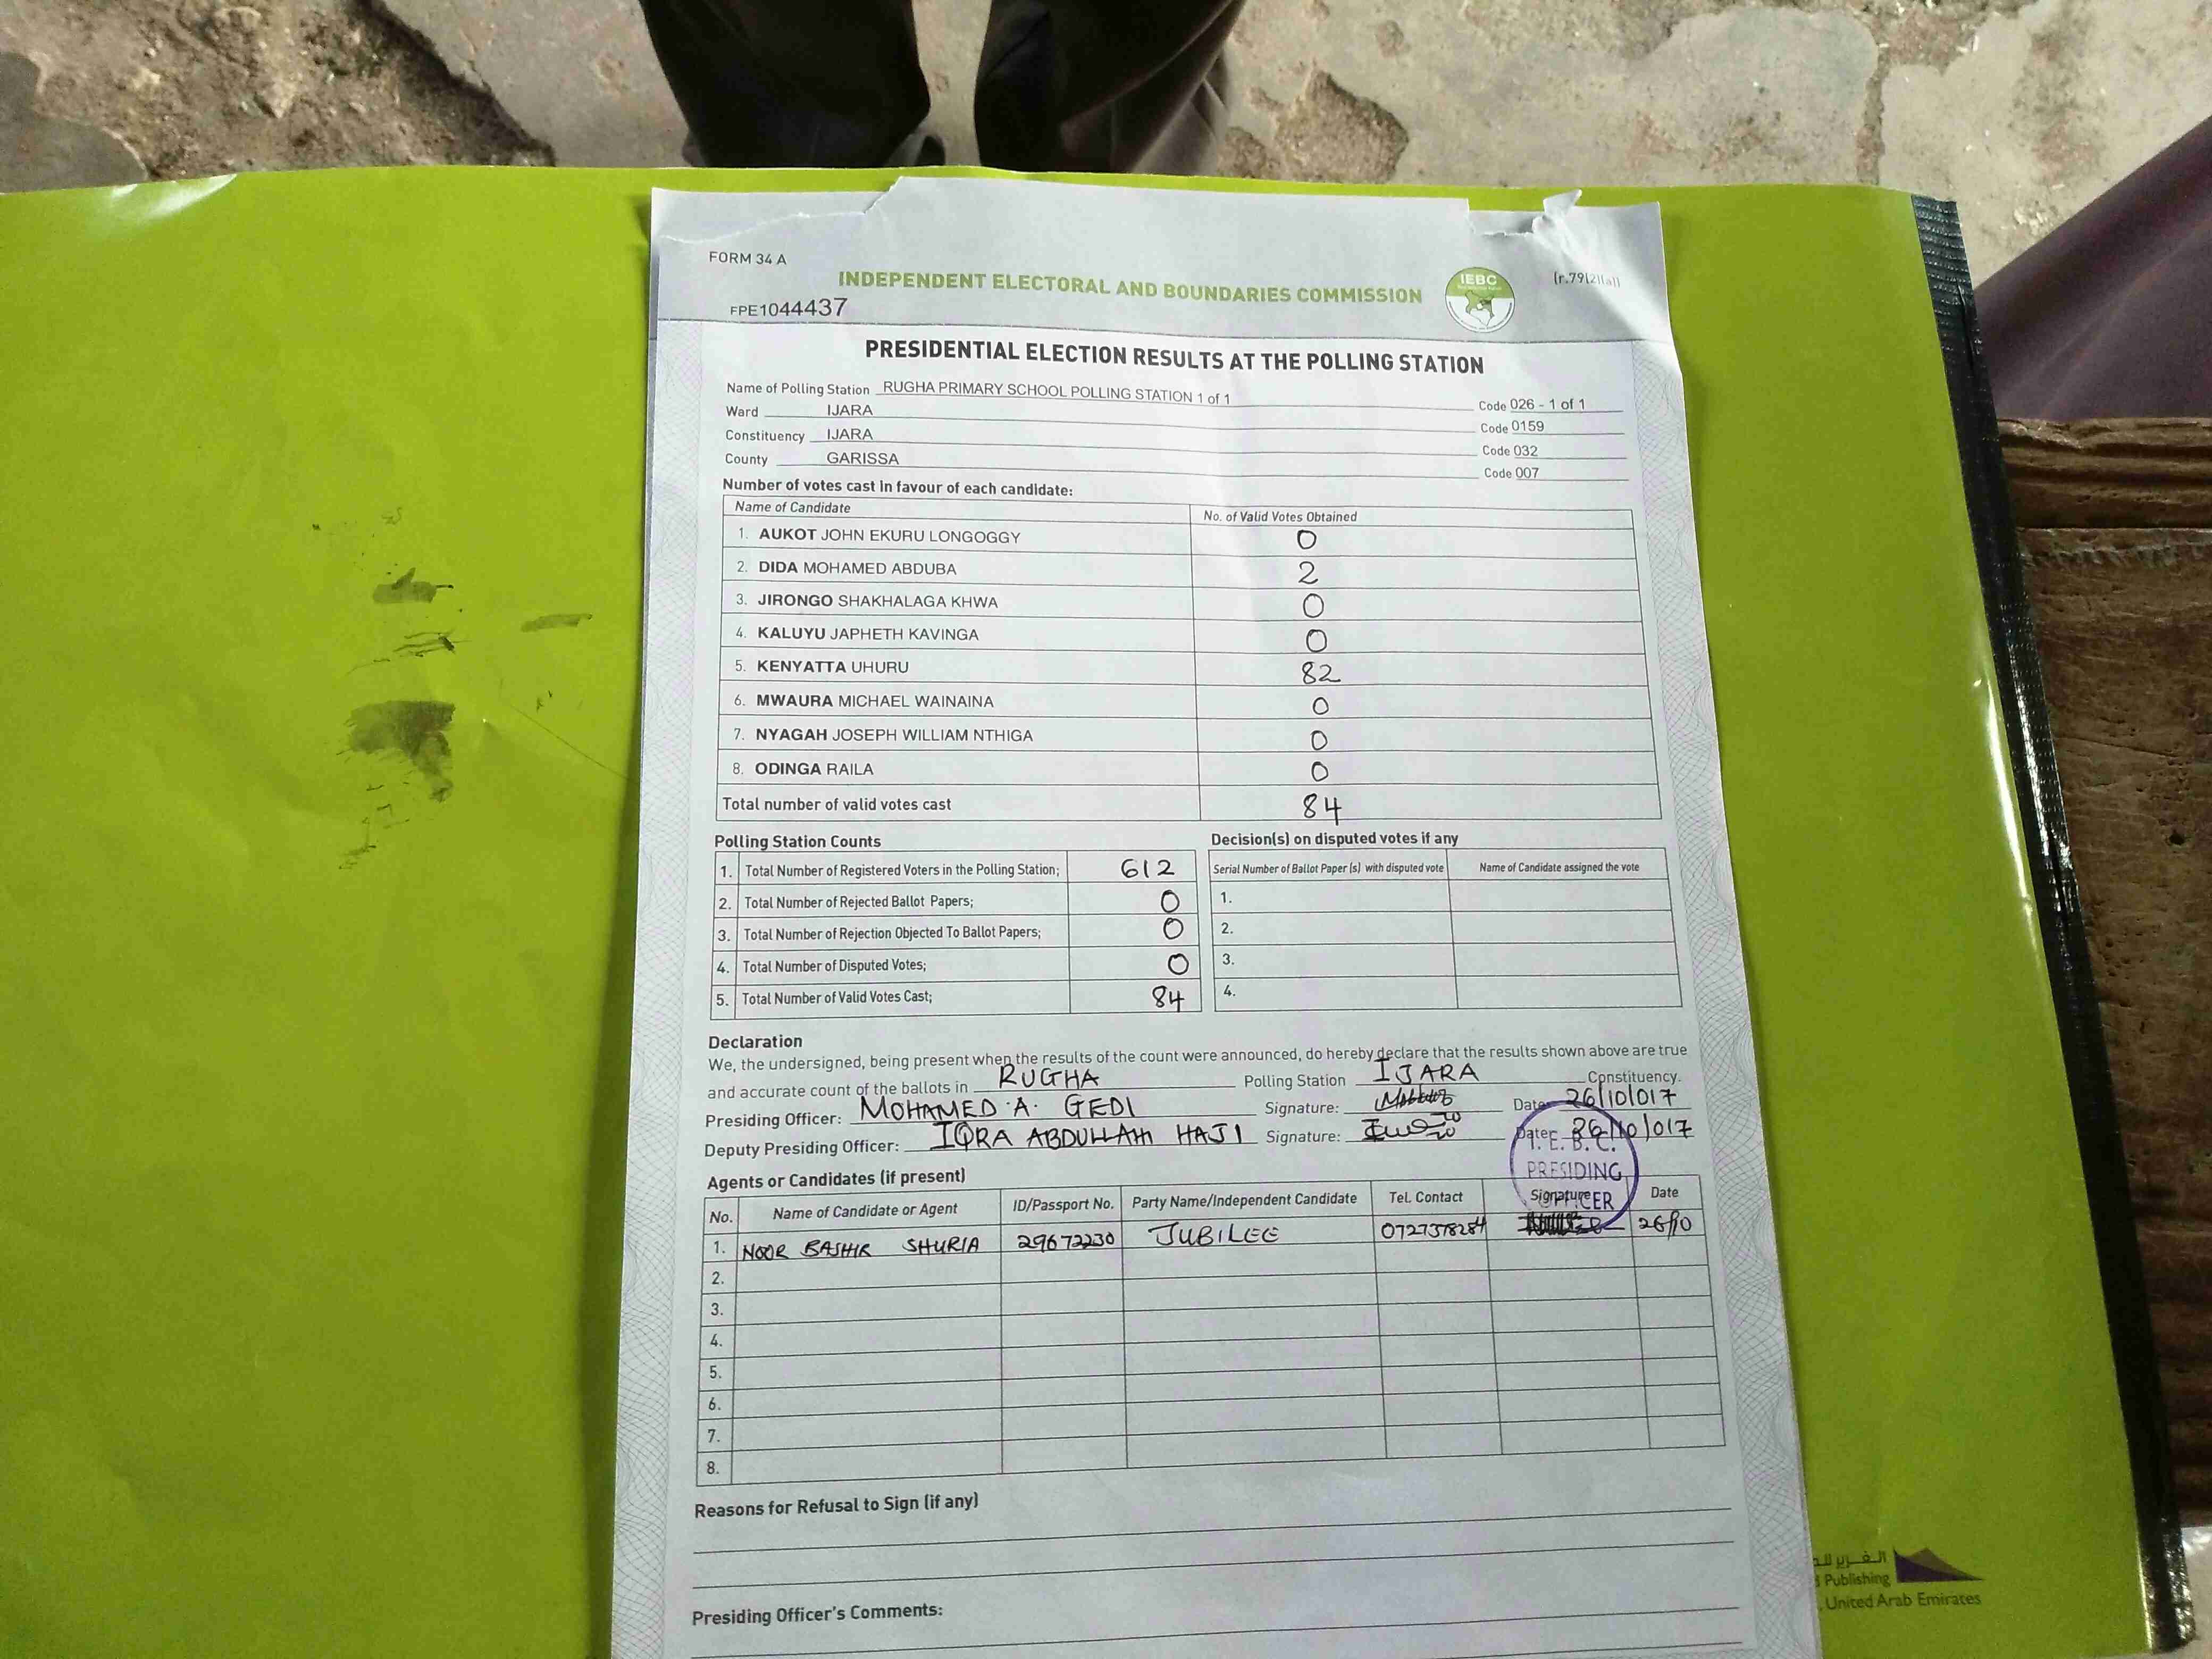 FORM 34 A
(r.79(2)(a))
INDEPENDENT ELECTORAL AND BOUNDARIES COMMISSION
IEBC
FPE1044437
PRESIDENTIAL ELECTION RESULTS AT THE POLLING STATION
Name of Polling Station RUGHA PRIMARY SCHOOL POLLING STATION 1 of 1 Code 026 - 1 of 1
Ward IJARA Code 0159
Constituency IJARA Code 032
County GARISSA Code 007
Number of votes cast in favour of each candidate:
Name of Candidate No. of Valid Votes Obtained
1. AUKOT JOHN EKURU LONGOGGY 0
2. DIDA MOHAMED ABDUBA 2
3. JIRONGO SHAKHALAGA KHWA 0
4. KALUYU JAPHETH KAVINGA 0
5. KENYATTA UHURU 82
6. MWAURA MICHAEL WAINAINA 0
7. NYAGAH JOSEPH WILLIAM NTHIGA 0
8. ODINGA RAILA 0
Total number of valid votes cast 84
Polling Station Counts
1. Total Number of Registered Voters in the Polling Station; 612
2. Total Number of Rejected Ballot Papers; 0
3. Total Number of Rejection Objected To Ballot Papers; 0
4. Total Number of Disputed Votes; 0
5. Total Number of Valid Votes Cast; 84
Decision(s) on disputed votes if any
Serial Number of Ballot Paper (s) with disputed vote Name of Candidate assigned the vote
1.
2.
3.
4.
Declaration
We, the undersigned, being present when the results of the count were announced, do hereby declare that the results shown above are true
and accurate count of the ballots in RUGHA Polling Station IJARA Constituency.
Presiding Officer: MOHAMED A. GEDI Signature: Date 26/10/017
Deputy Presiding Officer: IQRA ABDULLAHI HAJI Signature: Date: 26/10/017
I.E.B.C.
PRESIDING
OFFICER
Agents or Candidates (if present)
No. Name of Candidate or Agent ID/Passport No. Party Name/Independent Candidate Tel. Contact Signature Date
1. NOOR BASHIR SHURIA 29672230 JUBILEE 0727378284 26/10
2.
3.
4.
5.
6.
7.
8.
Reasons for Refusal to Sign (if any)
Presiding Officer's Comments:
الغرير
Publishing
United Arab Emirates